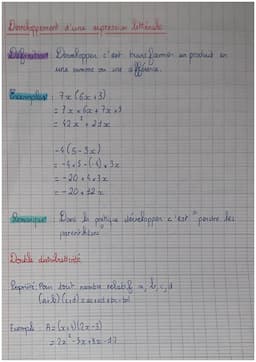 Développement d'une expression littérale
Définition : Développer c'est transformer un produit en
une somme ou une différence.
Exemples : 7x(6x+3)
= 7x × 6x + 7x × 3
= 42x² + 21x
-4(5-3x)
= -4×5-(-4)×3x
= -20+4×3x
= -20+12x
Remarque : Dans la pratique développer c'est "perdre les
parenthèses"
Double distributivité
Propriété : Pour tout nombre relatif a, b, c, d
(a+b)(c+d) = ac+ad+bc+bd
Exemple : A = (x+4)(2x-3)
= 2x² - 3x + 8x - 12